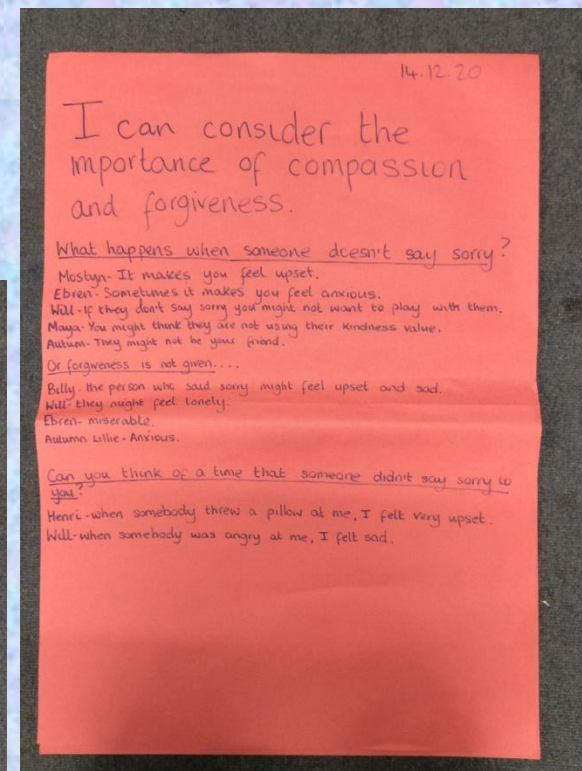 14.12.20
I can consider the
importance of compassion
and forgiveness.
What happens when someone doesn't say sorry?
Mostyn- It makes you feel upset.
Ebren- Sometimes it makes you feel anxious.
Will- If they don't say sorry you might not want to play with them.
Maya- You might think they are not using their kindness value.
Autum- They might not be your friend.
Or forgiveness is not given....
Billy- the person who said sorry might feel upset and sad.
Will- they might feel lonely.
Ebren- miserable.
Autumn Lillie- Anxious.
Can you think of a time that someone didn't say sorry to
you?
Henri- when somebody threw a pillow at me, I felt very upset.
Will- when somebody was angry at me, I felt sad.